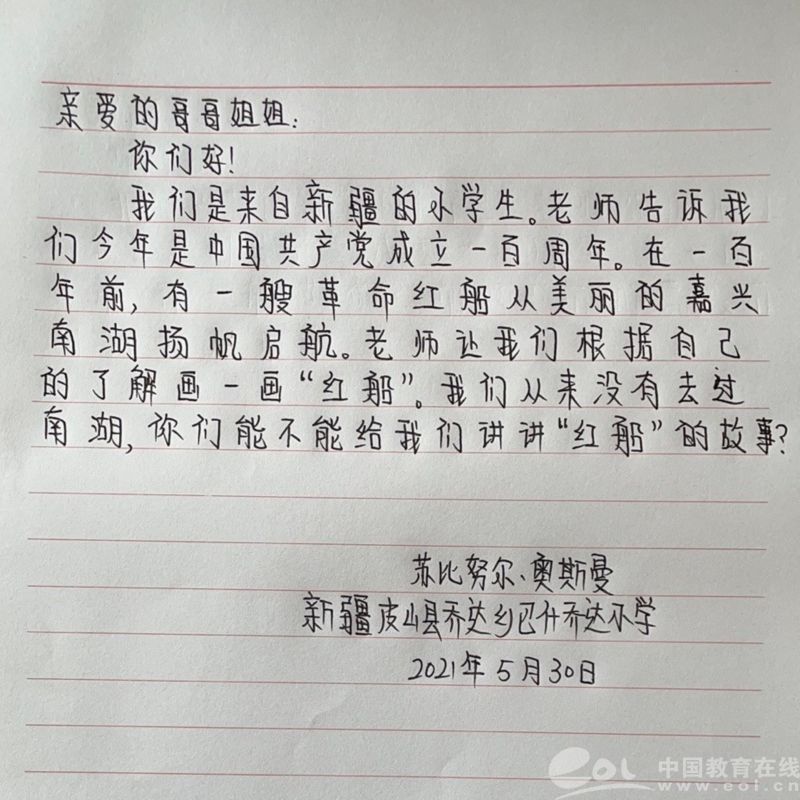 亲爱的哥哥姐姐:
你们好!
我们是来自新疆的小学生。老师告诉我
们今年是中国共产党成立一百周年。在一百
年前,有一艘革命红船从美丽的嘉兴
南湖扬帆启航。老师让我们根据自己
的了解画一画“红船”。我们从来没有去过
南湖,你们能不能给我们讲讲“红船”的故事?
苏比努尔·奥斯曼
新疆皮山县乔达乡巴什乔达小学
2021年5月30日
eol 中国教育在线
www.eol.cn